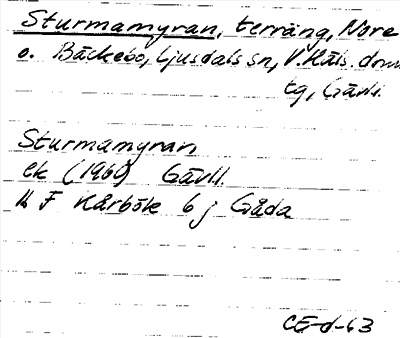 Sturmamyran, terräng, Nore
o. Bäckebo, Ljusdals sn, V. Häls. dom
tg, Gävl.
Sturmamyran
ek (1960) Gävl.
16 F Kårbök 6 j Gåda
CE-d-63